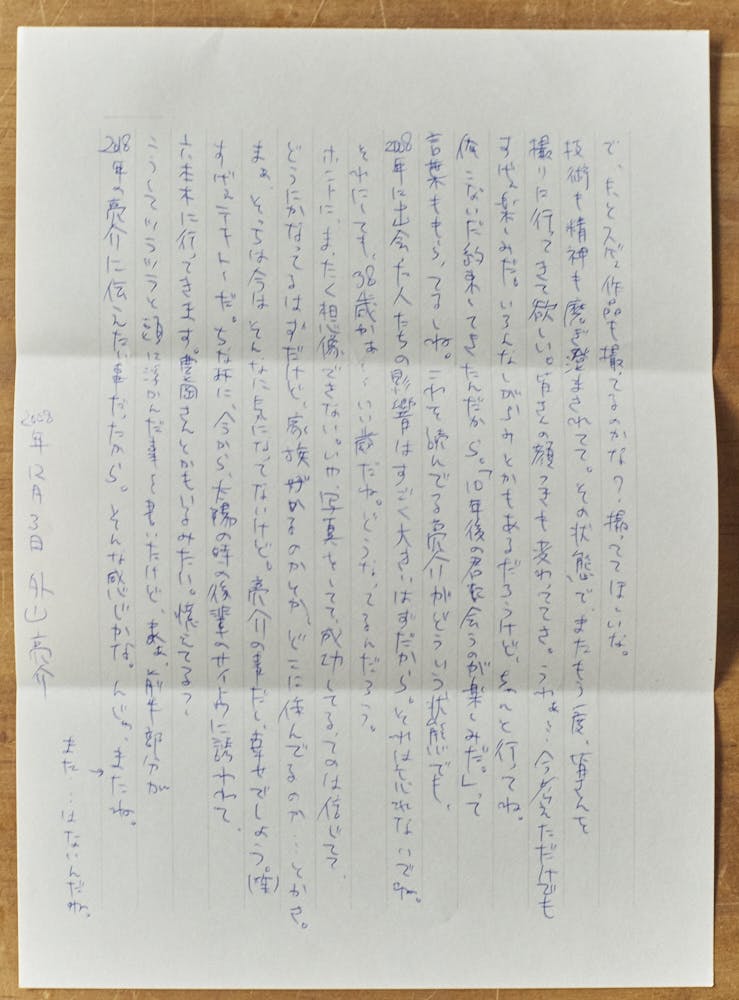 で、もっとスゲェ作品も撮ってるのかな?撮っててほしいな。
技術も精神も磨ぎ澄まされてて。その状態で、またもう一度、皆さんを
撮りに行ってきて欲しい。皆さんの顔つきも変わっててさ。うわぁ…今考えただけでも
すげぇ楽しみだ。いろんなしがらみとかもあるだろうけど、ちゃんと行ってね。
俺こないだ約束してきたんだから。「10年後の君に会うのが楽しみだ。」って
言葉ももらってるしね。これを読んでる亮介がどういう状態でも、
2008年に出会った人たちの影響はすごく大きいはずだから。それは忘れないでね。
それにしても、38歳かぁ…いい歳だね。どうなってるんだろう。
ホントに、まったく想像できない。いや、写真をしてて、成功してるってのは信じてて、
どうにかなってるはずだけど、家族がいるのかとか、どこに住んでるのか…とかさ。
まぁ、そっちは今はそんなに気になってないけど。亮介の事だし、幸せでしょう。(笑)
すげェテキトーだ。ちなみに、今から、太陽の時の後輩のサイトウに誘われて、
六本木に行ってきます。豊岡さんとかもいるみたい。憶えてる?
こうしてツラツラと頭に浮かんだ事を書いたけど、まぁ、前半部分が
2018年の亮介に伝えたい事だったから。そんな感じかな。んじゃ、またね。
また…はないんだね。
2008年12月3日 外山亮介